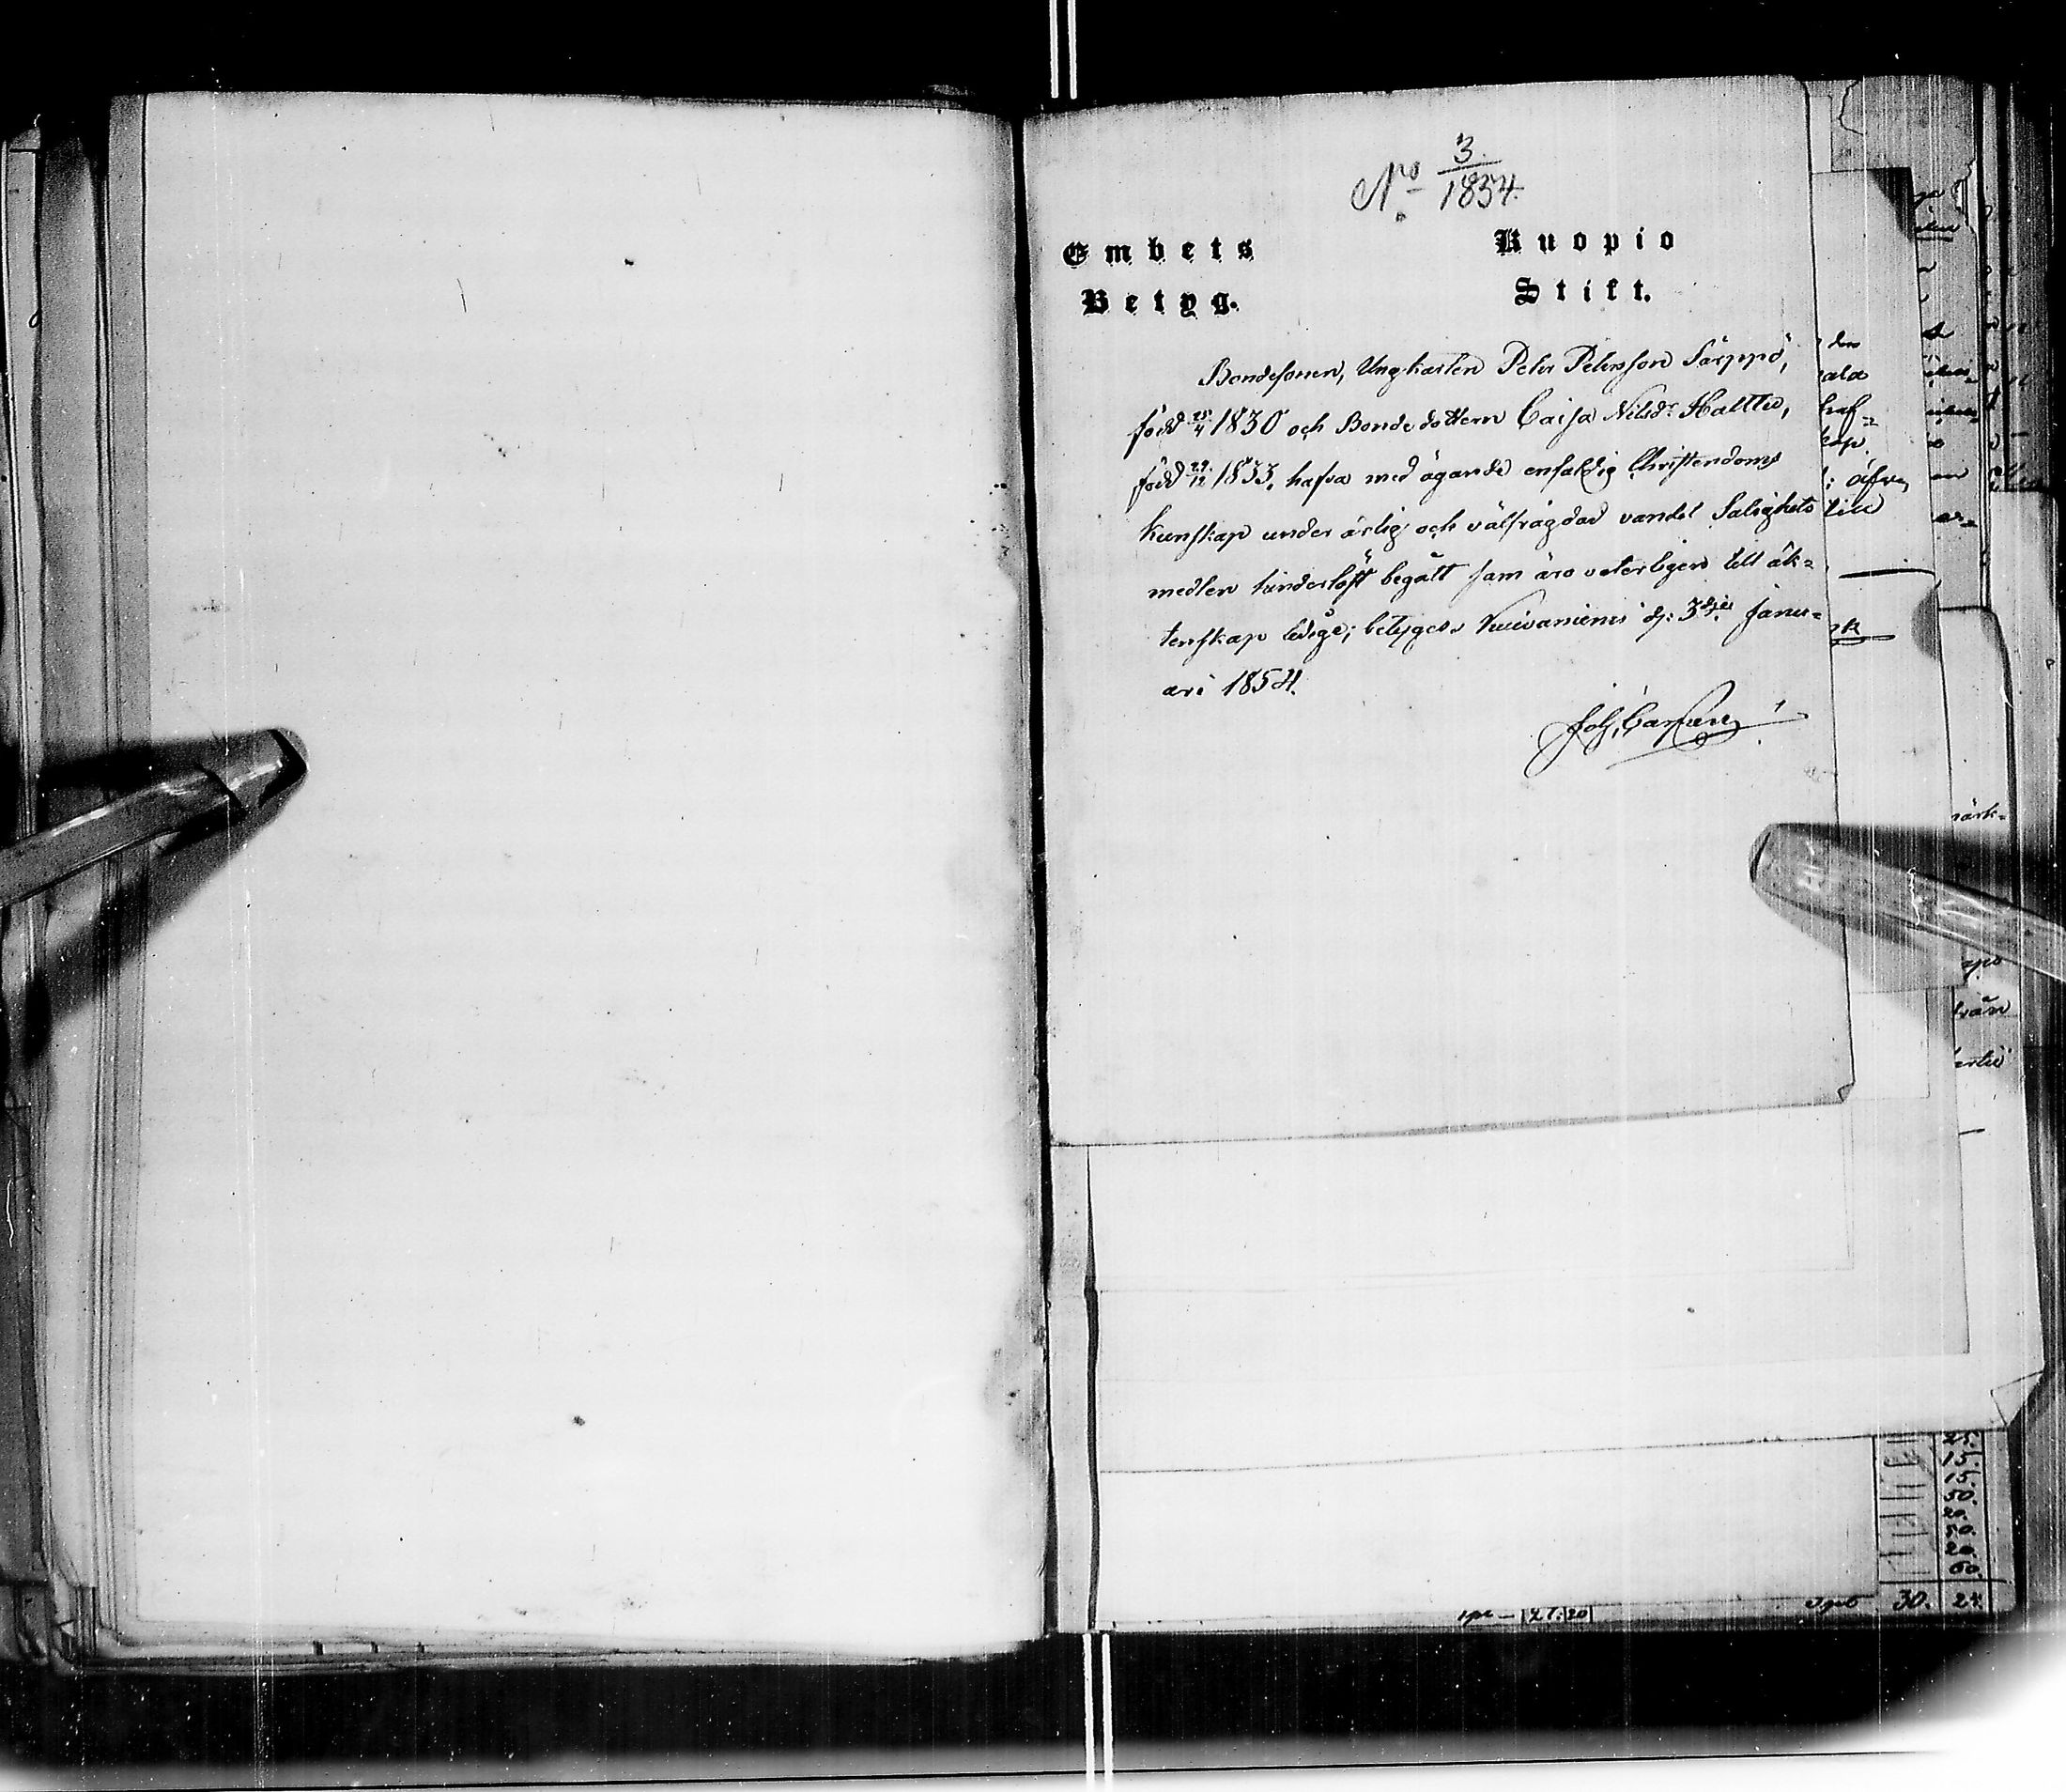 No 3/1854.
Embets
Betyg.
Kuopio
Stift.
Bondesonen, Ungkarlen Peter Petersson Särppö,
född 25/4 1830 och Bondedottern Caisa Nilsdr Halttu,
född 29/12 1833, hafva med ägande enfaldig Christendoms
kunskap under ärlig och välfrägdad vandel Salighets
medlen hinderlöst begått samt äro veterligen till äk=
tenskap ledige; betygas Kuivaniemi d: 3dje Janu=
ari 1854.
Joh, Carlsen
den
ala
haf=
kap
: äfven
till
rk
märk=
från
25.
15.
15.
50.
20.
50.
20.
60.
30. 24.
27. 20